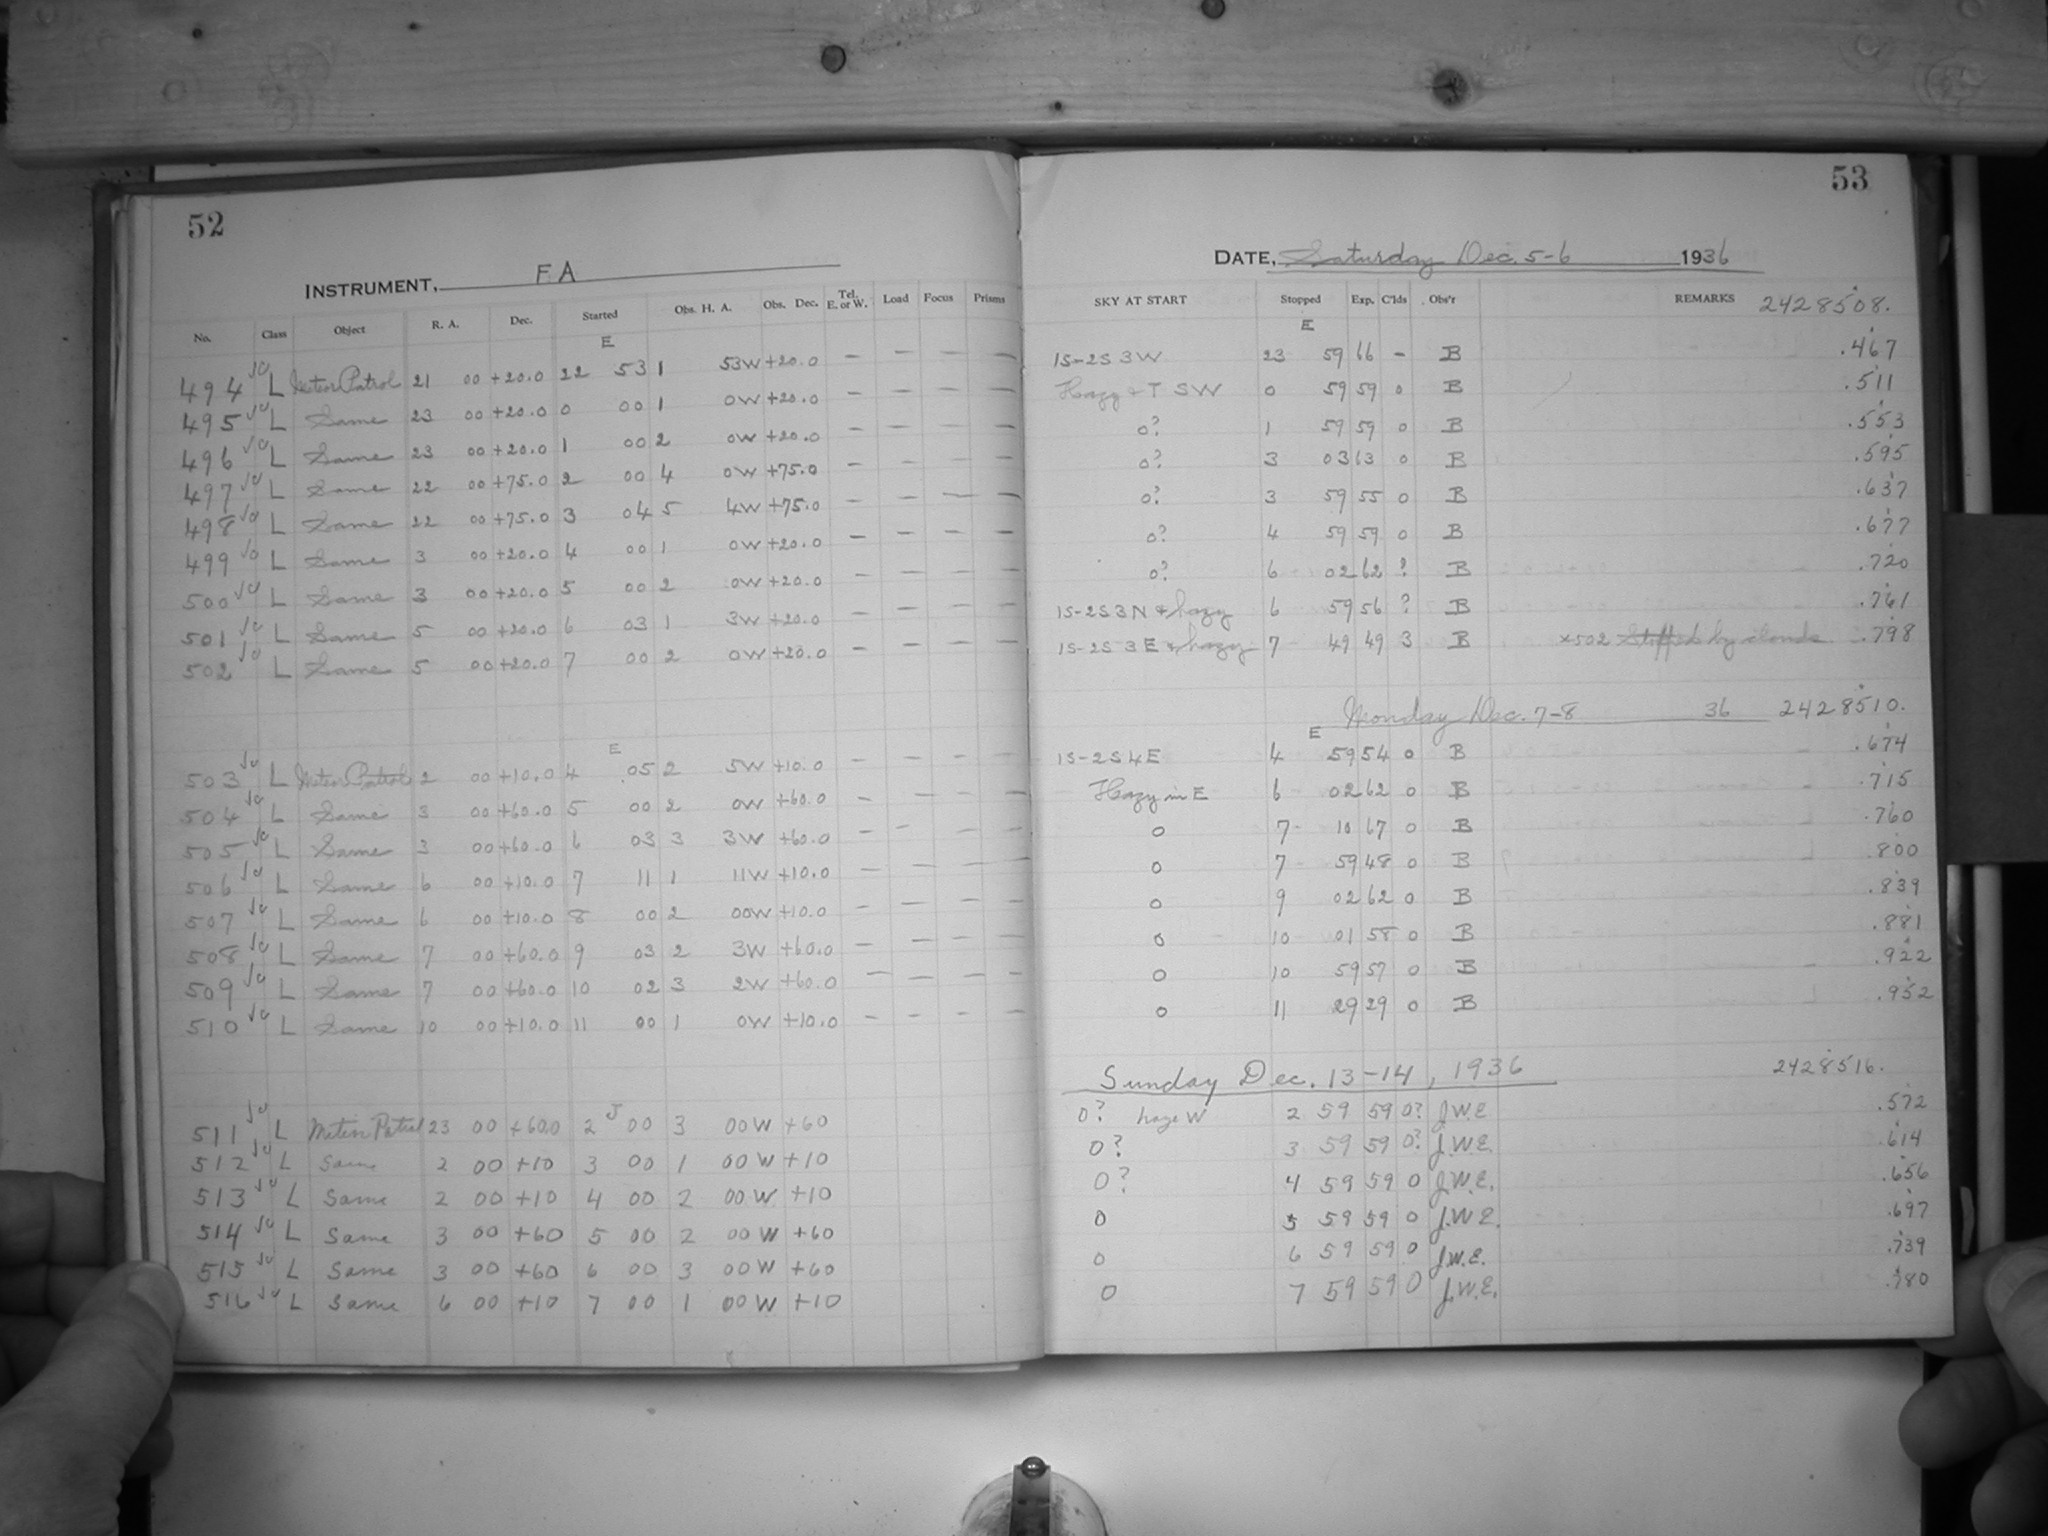 52
INSTRUMENT, FA
No. Class Object R. A. Dec. Started Obs. H. A. Obs. Dec. Tel. E. or W. Load Focus Prisms
E
494 L Meteor Patrol 21 00 +20.0 22 53 1 53W +20.0 — — — —
495 L Same 23 00 +20.0 0 00 1 0W +20.0 — — — —
496 L Same 23 00 +20.0 1 00 2 0W +20.0 — — — —
497 L Same 22 00 +75.0 2 00 4 0W +75.0 — — — —
498 L Same 22 00 +75.0 3 04 5 4W +75.0 — — — —
499 L Same 3 00 +20.0 4 00 1 0W +20.0 — — — —
500 L Same 3 00 +20.0 5 00 2 0W +20.0 — — — —
501 L Same 5 00 +20.0 6 03 1 3W +20.0 — — — —
502 L Same 5 00 +20.0 7 00 2 0W +20.0 — — — —
E
503 L Meteor Patrol 2 00 +10.0 4 05 2 5W +10.0 — — — —
504 L Same 3 00 +60.0 5 00 2 0W +60.0 — — — —
505 L Same 3 00 +60.0 6 03 3 3W +60.0 — — — —
506 L Same 6 00 +10.0 7 11 1 11W +10.0 — — — —
507 L Same 6 00 +10.0 8 00 2 00W +10.0 — — — —
508 L Same 7 00 +60.0 9 03 2 3W +60.0 — — — —
509 L Same 7 00 +60.0 10 02 3 2W +60.0 — — — —
510 L Same 10 00 +10.0 11 00 1 0W +10.0 — — — —
J
511 L Meteor Patrol 23 00 +60.0 2 00 3 00W +60
512 L Same 2 00 +10 3 00 1 00W +10
513 L Same 2 00 +10 4 00 2 00W +10
514 L Same 3 00 +60 5 00 2 00W +60
515 L Same 3 00 +60 6 00 3 00W +60
516 L Same 6 00 +10 7 00 1 00W +10
53
DATE, Saturday Dec. 5-6 1936
SKY AT START Stopped Exp. C'lds Obs'r REMARKS 2428508.
E
1S-2S 3W 23 59 66 - B .467
Hazy & T SW 0 59 59 0 B .511
0? 1 59 59 0 B .553
0? 3 03 63 0 B .595
0? 3 59 55 0 B .637
0? 4 59 59 0 B .677
0? 6 02 62 ? B .720
1S-2S 3N & hazy 6 59 56 ? B .761
1S-2S 3E & hazy 7 49 49 3 B x502 Stopped by clouds .798
Monday Dec. 7-8 36 2428510.
E
1S-2S 4E 4 59 54 0 B .674
Hazy in E 6 02 62 0 B .715
0 7 10 67 0 B .760
0 7 59 48 0 B .800
0 9 02 62 0 B .839
0 10 01 58 0 B .881
0 10 59 57 0 B .922
0 11 29 29 0 B .952
Sunday Dec. 13-14, 1936 2428516.
0? haze W 2 59 59 0? J.W.E. .572
0? 3 59 59 0? J.W.E. .614
0? 4 59 59 0 J.W.E. .656
0 5 59 59 0 J.W.E. .697
0 6 59 59 0 J.W.E. .739
0 7 59 59 0 J.W.E. .780